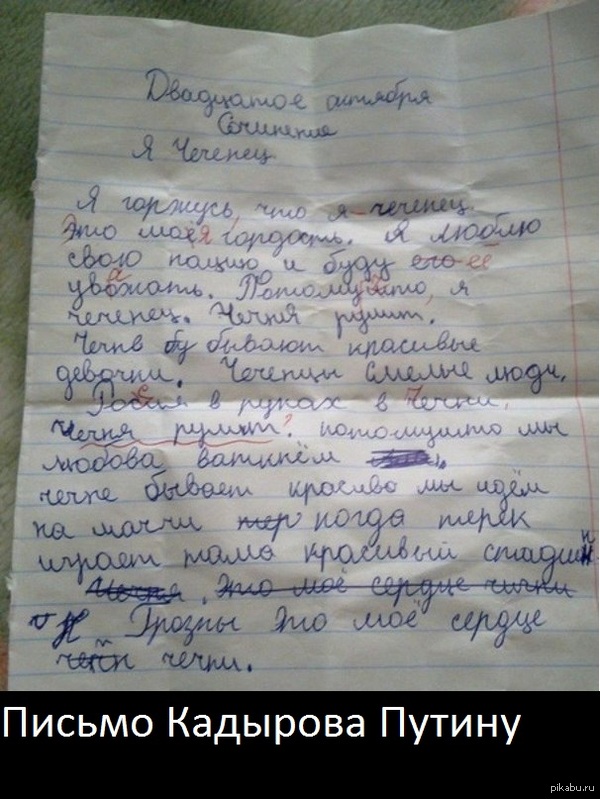 Двадцатое октября
Сочинение
Я Чеченец
Я горжусь, что я - чеченец.
Это моёя гордость. Я люблю
свою нацию и буду его её
уважать. Потомушто, я
чеченец. Чечня рулит.
Чечне бу бывают красивые
девочки. Чеченцы смелые люди.
Россия в руках в Чечни,
Чечня рулит? потомушто мы
любова ваткнём
чечне бывает красиво мы идём
на матчи тер когда терек
играет тама красивый стадион
Чечня, Это моё сердце чични
Грозны Это моё сердце
чечни.
Письмо Кадырова Путину
pikabu.ru